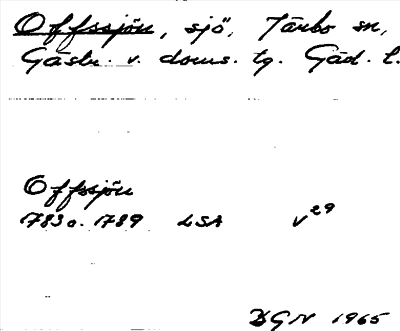 Offssjön, sjö, Järbo sn,
Gästr. v. doms. tg. Gäd. l.
Offssjön
1783 o. 1789 LSA V29
BGN 1965